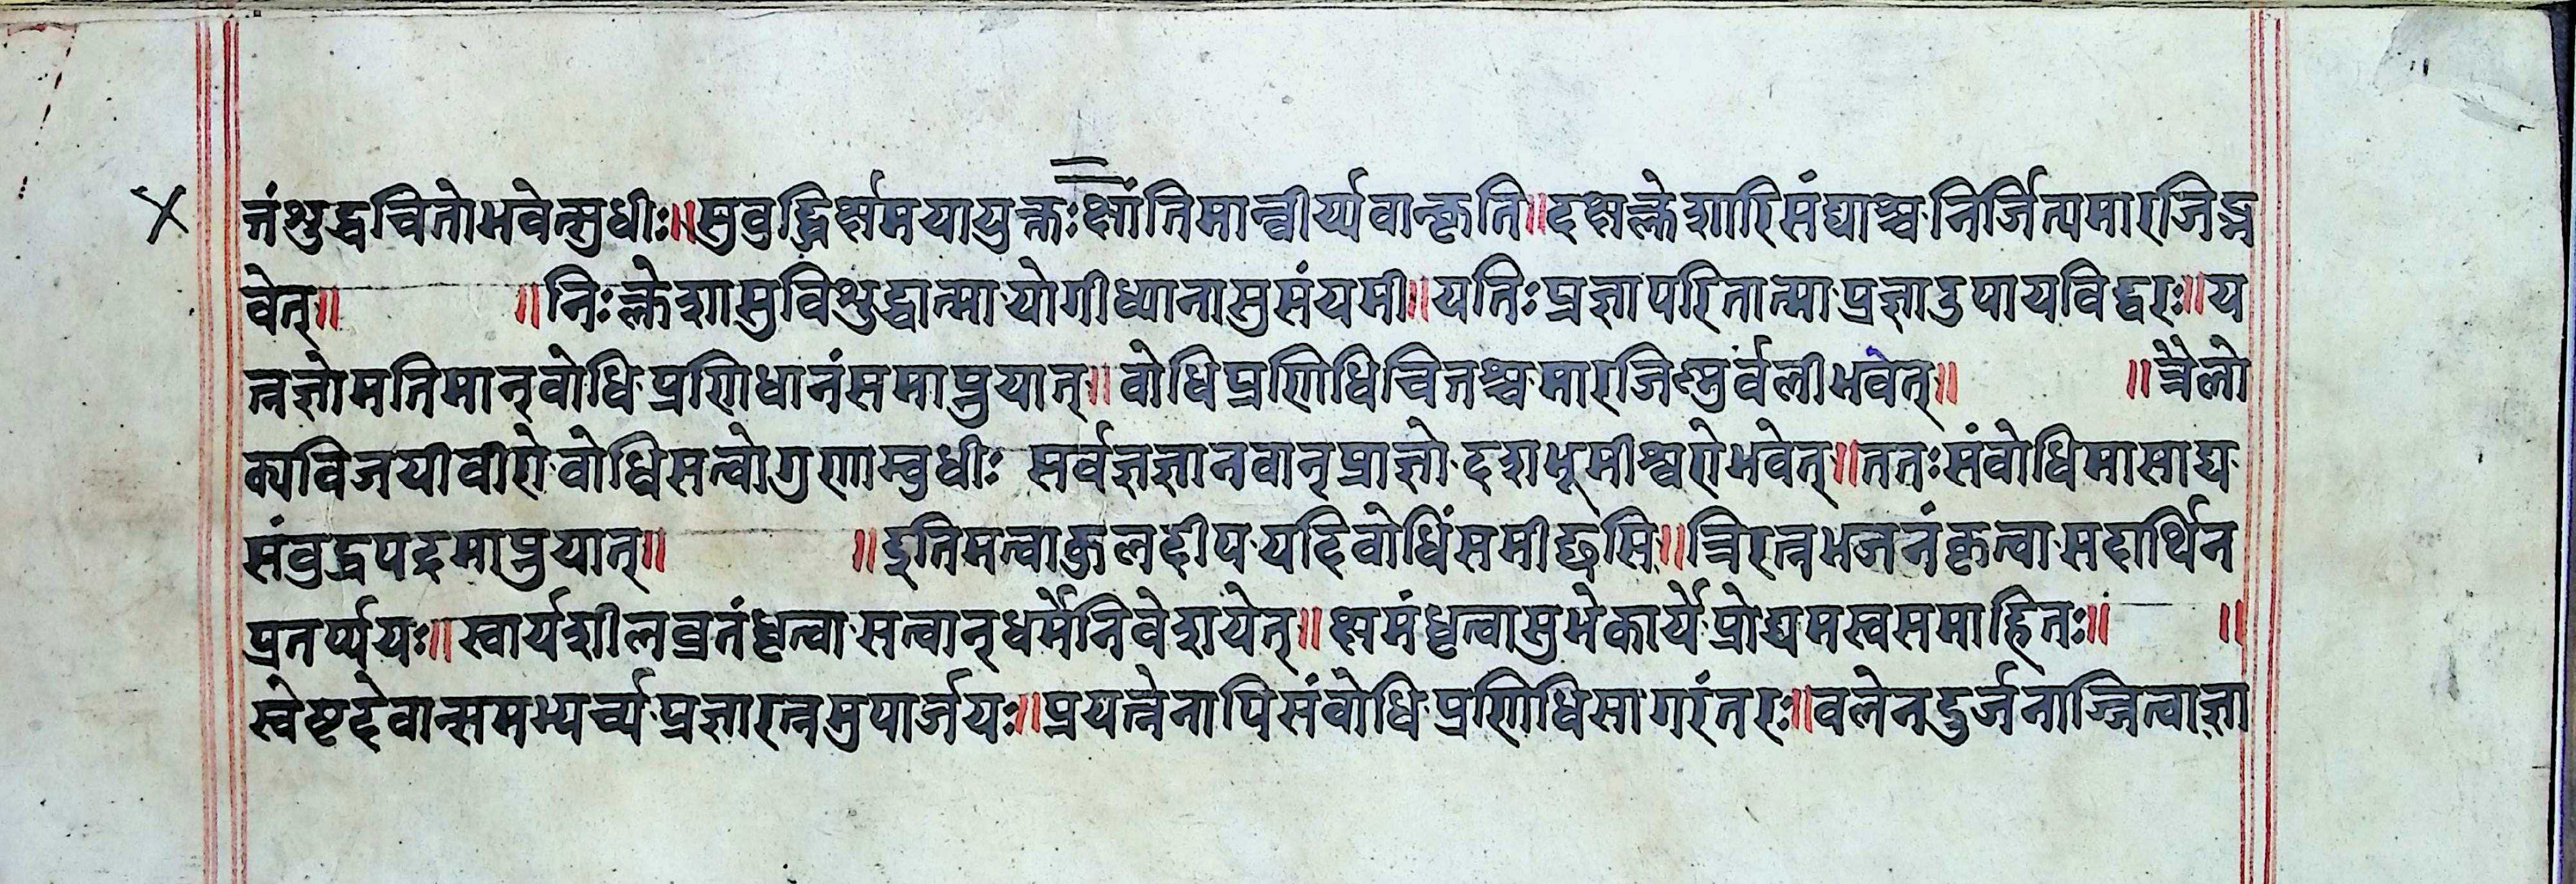 त्तंशुद्धचितोभवेत्सुधीः॥सुवुद्धिर्क्षमयायुक्तःक्षांतिमान्वीर्य्यवान्कृति॥दक्षक्लेशारिसंघाश्चनिर्जित्यमारजिद्भ
वेत्॥ ॥निःक्लेशासुविशुद्धात्मायोगीध्यानासुसंयमी॥यतिःप्रज्ञापरितात्माप्रज्ञाउपायविद्वरः॥य
त्नज्ञोमतिमान्वोधिप्रणिधानंसमाप्नुयात्॥वोधिप्रणिधिचित्तश्चमारजिष्णुर्वलीभवेत्॥ ॥त्रैलो
क्यविजयीवीरोवोधिसत्वोगुणाम्वुधीः सर्वज्ञज्ञानवान्प्राज्ञोदशभूमीश्वरोभवेत्॥ततःसंवोधिमासाद्य
संवुद्धपदमाप्नुयात्॥ ॥इतिमत्वाकुलदीपयदिवोधिंसमीछसि॥त्रिरत्नभजनंकृत्वासदार्थिन
प्रतर्प्पयः॥स्वार्यशीलव्रतंधृत्वासत्वान्धर्मेनिवेशयेत्॥क्षमंधृत्वासुभेकार्येप्रोद्यमस्वसमाहितः॥ ॥
स्वेष्टदेवान्समभ्यर्च्यप्रज्ञारत्नमुपार्जयः॥प्रयत्नेनापिसंवोधिप्रणिधिसागरंतरः॥वलेनदुर्जनाञ्जित्वाज्ञा